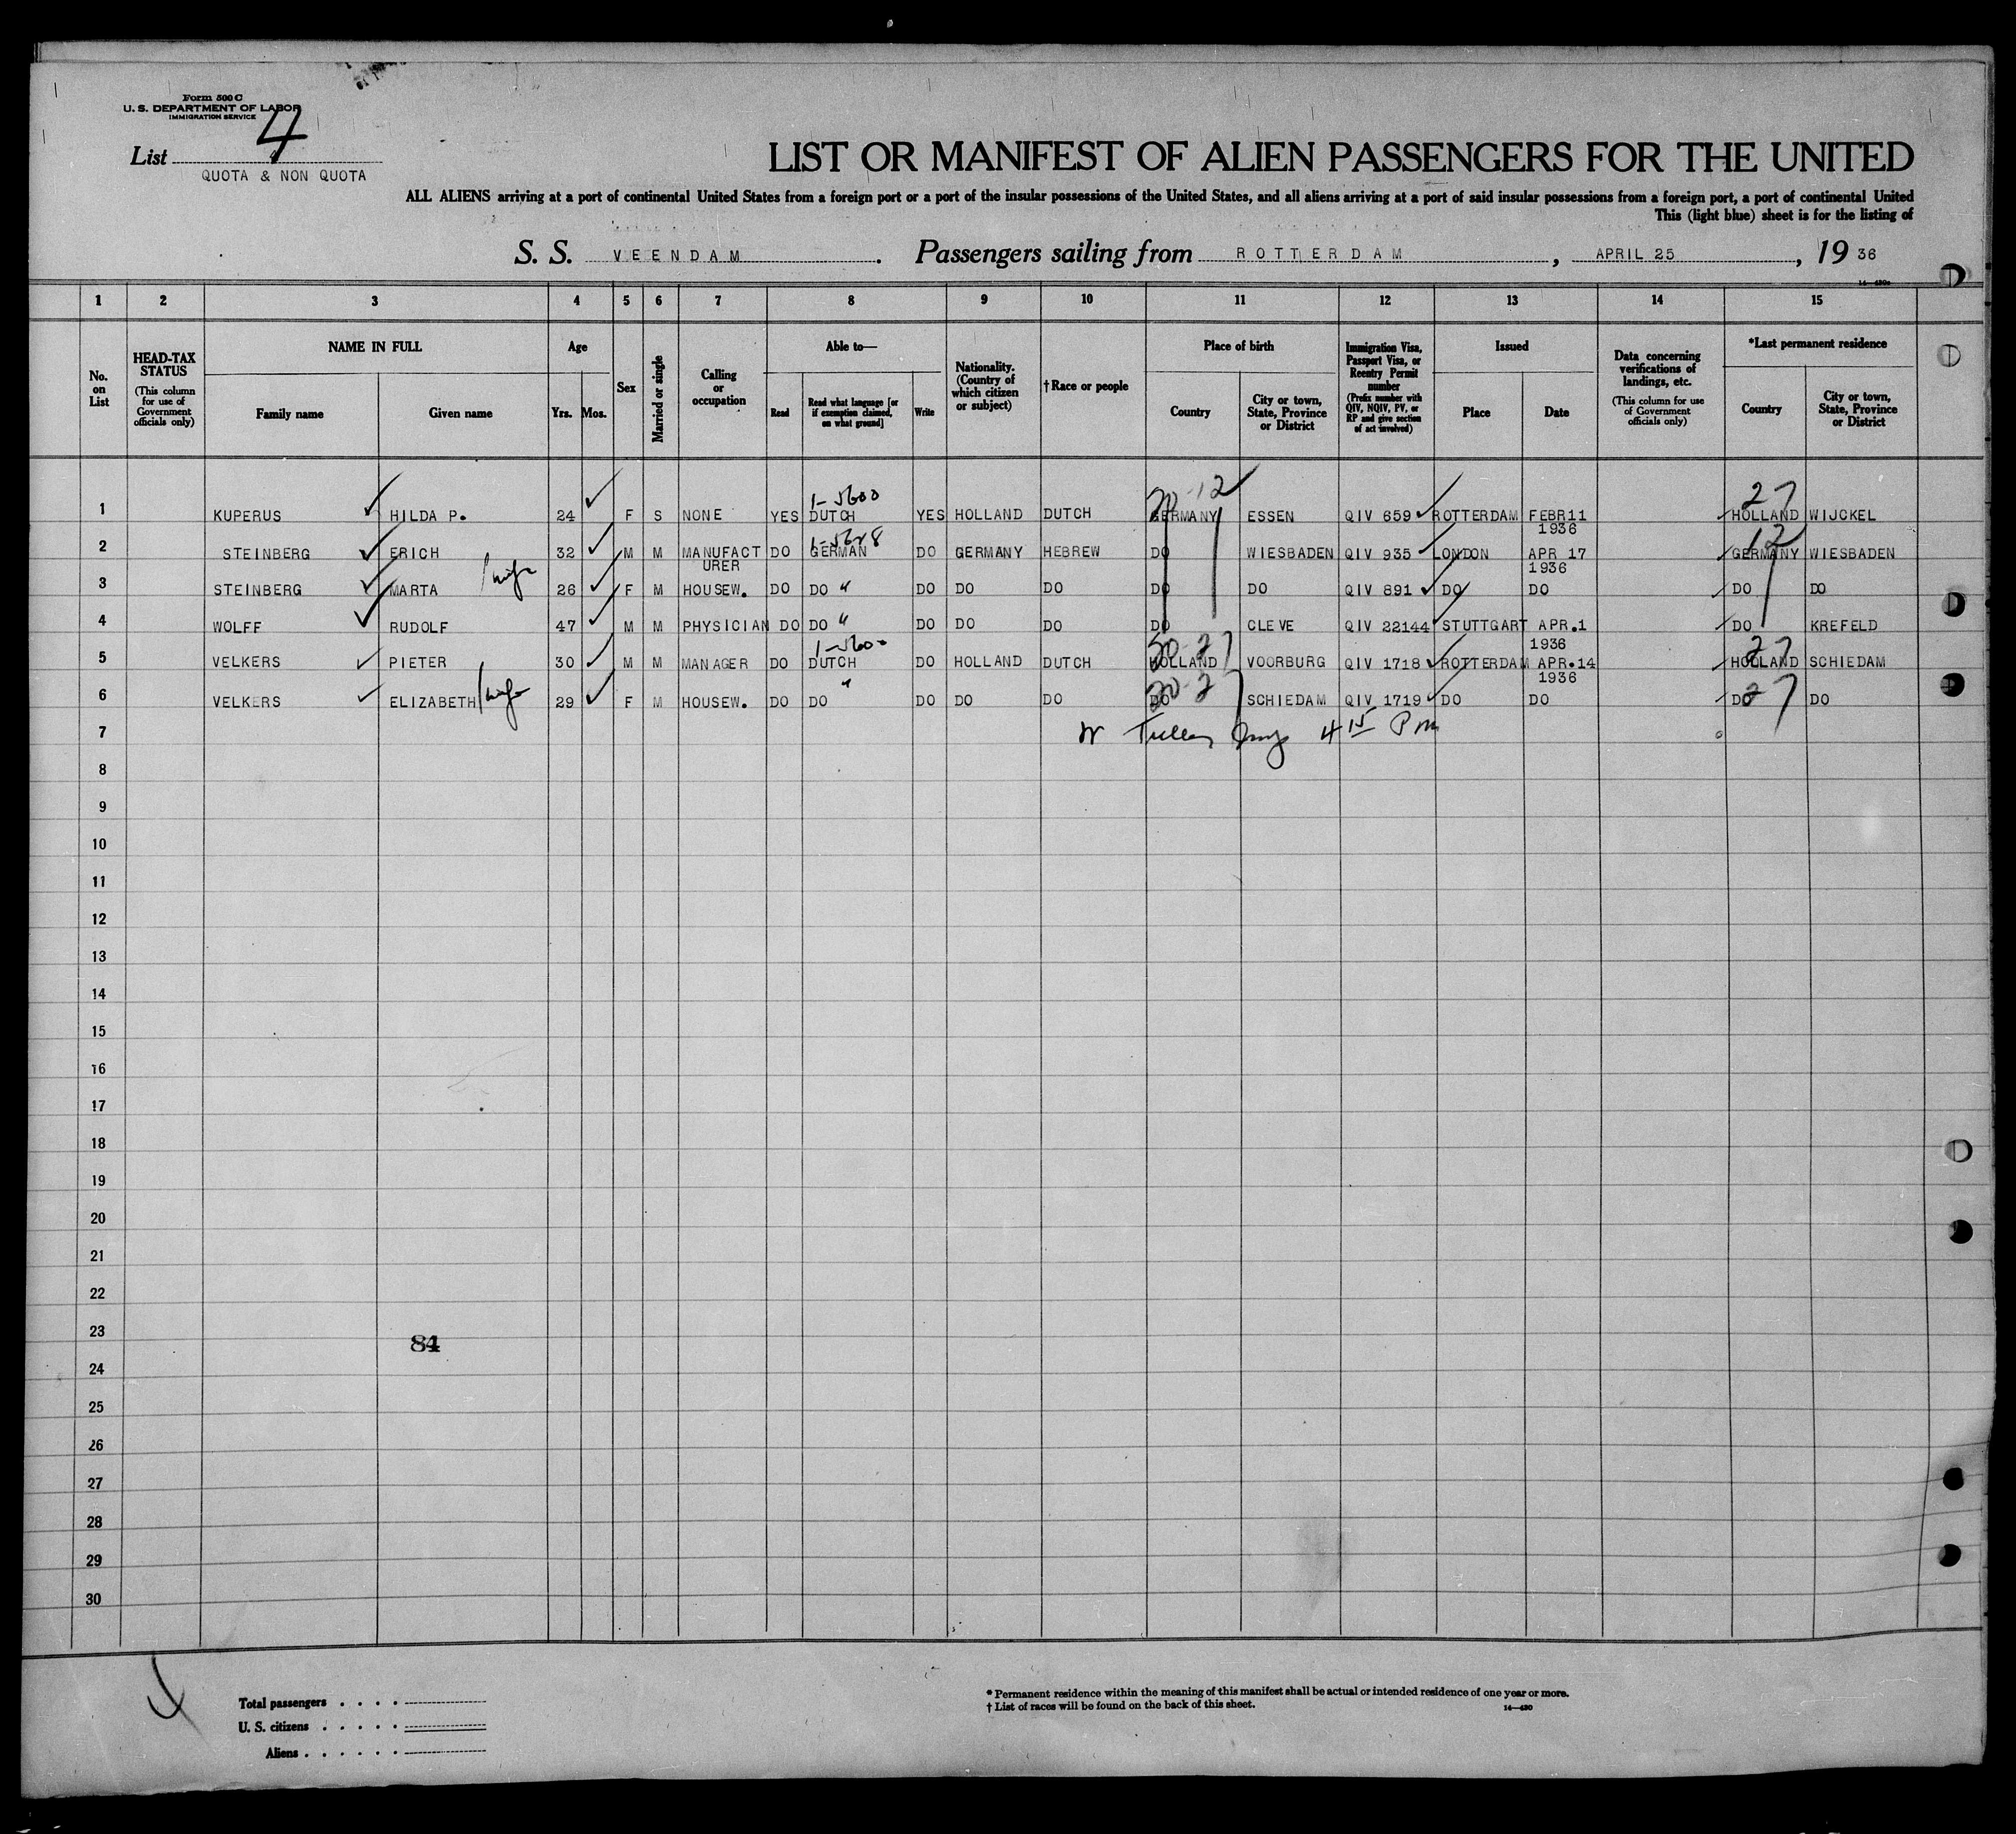 Form 500 C
U. S. DEPARTMENT OF LABOR
IMMIGRATION SERVICE
List 4
QUOTA & NON QUOTA
LIST OR MANIFEST OF ALIEN PASSENGERS FOR THE UNITED
ALL ALIENS arriving at a port of continental United States from a foreign port or a port of the insular possessions of the United States, and all aliens arriving at a port of said insular possessions from a foreign port, a port of continental United
This (light blue) sheet is for the listing of
S. S. VEENDAM. Passengers sailing from ROTTERDAM, APRIL 25, 19 36
1 2 3 4 5 6 7 8 9 10 11 12 13 14 15
No. on List
HEAD-TAX STATUS (This column for use of Government officials only)
NAME IN FULL
Family name Given name
Age
Yrs. Mos.
Sex
Married or single
Calling or occupation
Able to—
Read
Read what language [or if exemption claimed, on what ground]
Write
Nationality. (Country of which citizen or subject)
† Race or people
Place of birth
Country
City or town, State, Province or District
Immigration Visa, Passport Visa, or Reentry Permit number (Prefix number with QIV, NQIV, PV, or RP and give section of act involved)
Issued
Place Date
Data concerning verifications of landings, etc. (This column for use of Government officials only)
*Last permanent residence
Country
City or town, State, Province or District
20-12 27
1-5600
1 KUPERUS HILDA P. 24 F S NONE YES DUTCH YES HOLLAND DUTCH GERMANY ESSEN QIV 659 ROTTERDAM FEBR 11 1936 HOLLAND WIJCKEL
1-5628 12
2 STEINBERG ERICH 32 M M MANUFACTURER DO GERMAN DO GERMANY HEBREW DO WIESBADEN QIV 935 LONDON APR 17 1936 GERMANY WIESBADEN
3 STEINBERG MARTA wife 26 F M HOUSEW. DO DO " DO DO DO DO DO QIV 891 DO DO DO DO
4 WOLFF RUDOLF 47 M M PHYSICIAN DO DO " DO DO DO DO CLEVE QIV 22144 STUTTGART APR. 1 1936 DO KREFELD
1-5600 20-27 27
5 VELKERS PIETER 30 M M MANAGER DO DUTCH DO HOLLAND DUTCH HOLLAND VOORBURG QIV 1718 ROTTERDAM APR. 14 1936 HOLLAND SCHIEDAM
20-27 27
6 VELKERS ELIZABETH wife 29 F M HOUSEW. DO DO " DO DO DO DO SCHIEDAM QIV 1719 DO DO DO DO
7 4 15 P m
8
9
10
11
12
13
14
15
16
17
18
19
20
21
22
23
84
24
25
26
27
28
29
30
Total passengers . . . .
U. S. citizens . . . . .
Aliens . . . . . .
* Permanent residence within the meaning of this manifest shall be actual or intended residence of one year or more.
† List of races will be found on the back of this sheet.
14—430